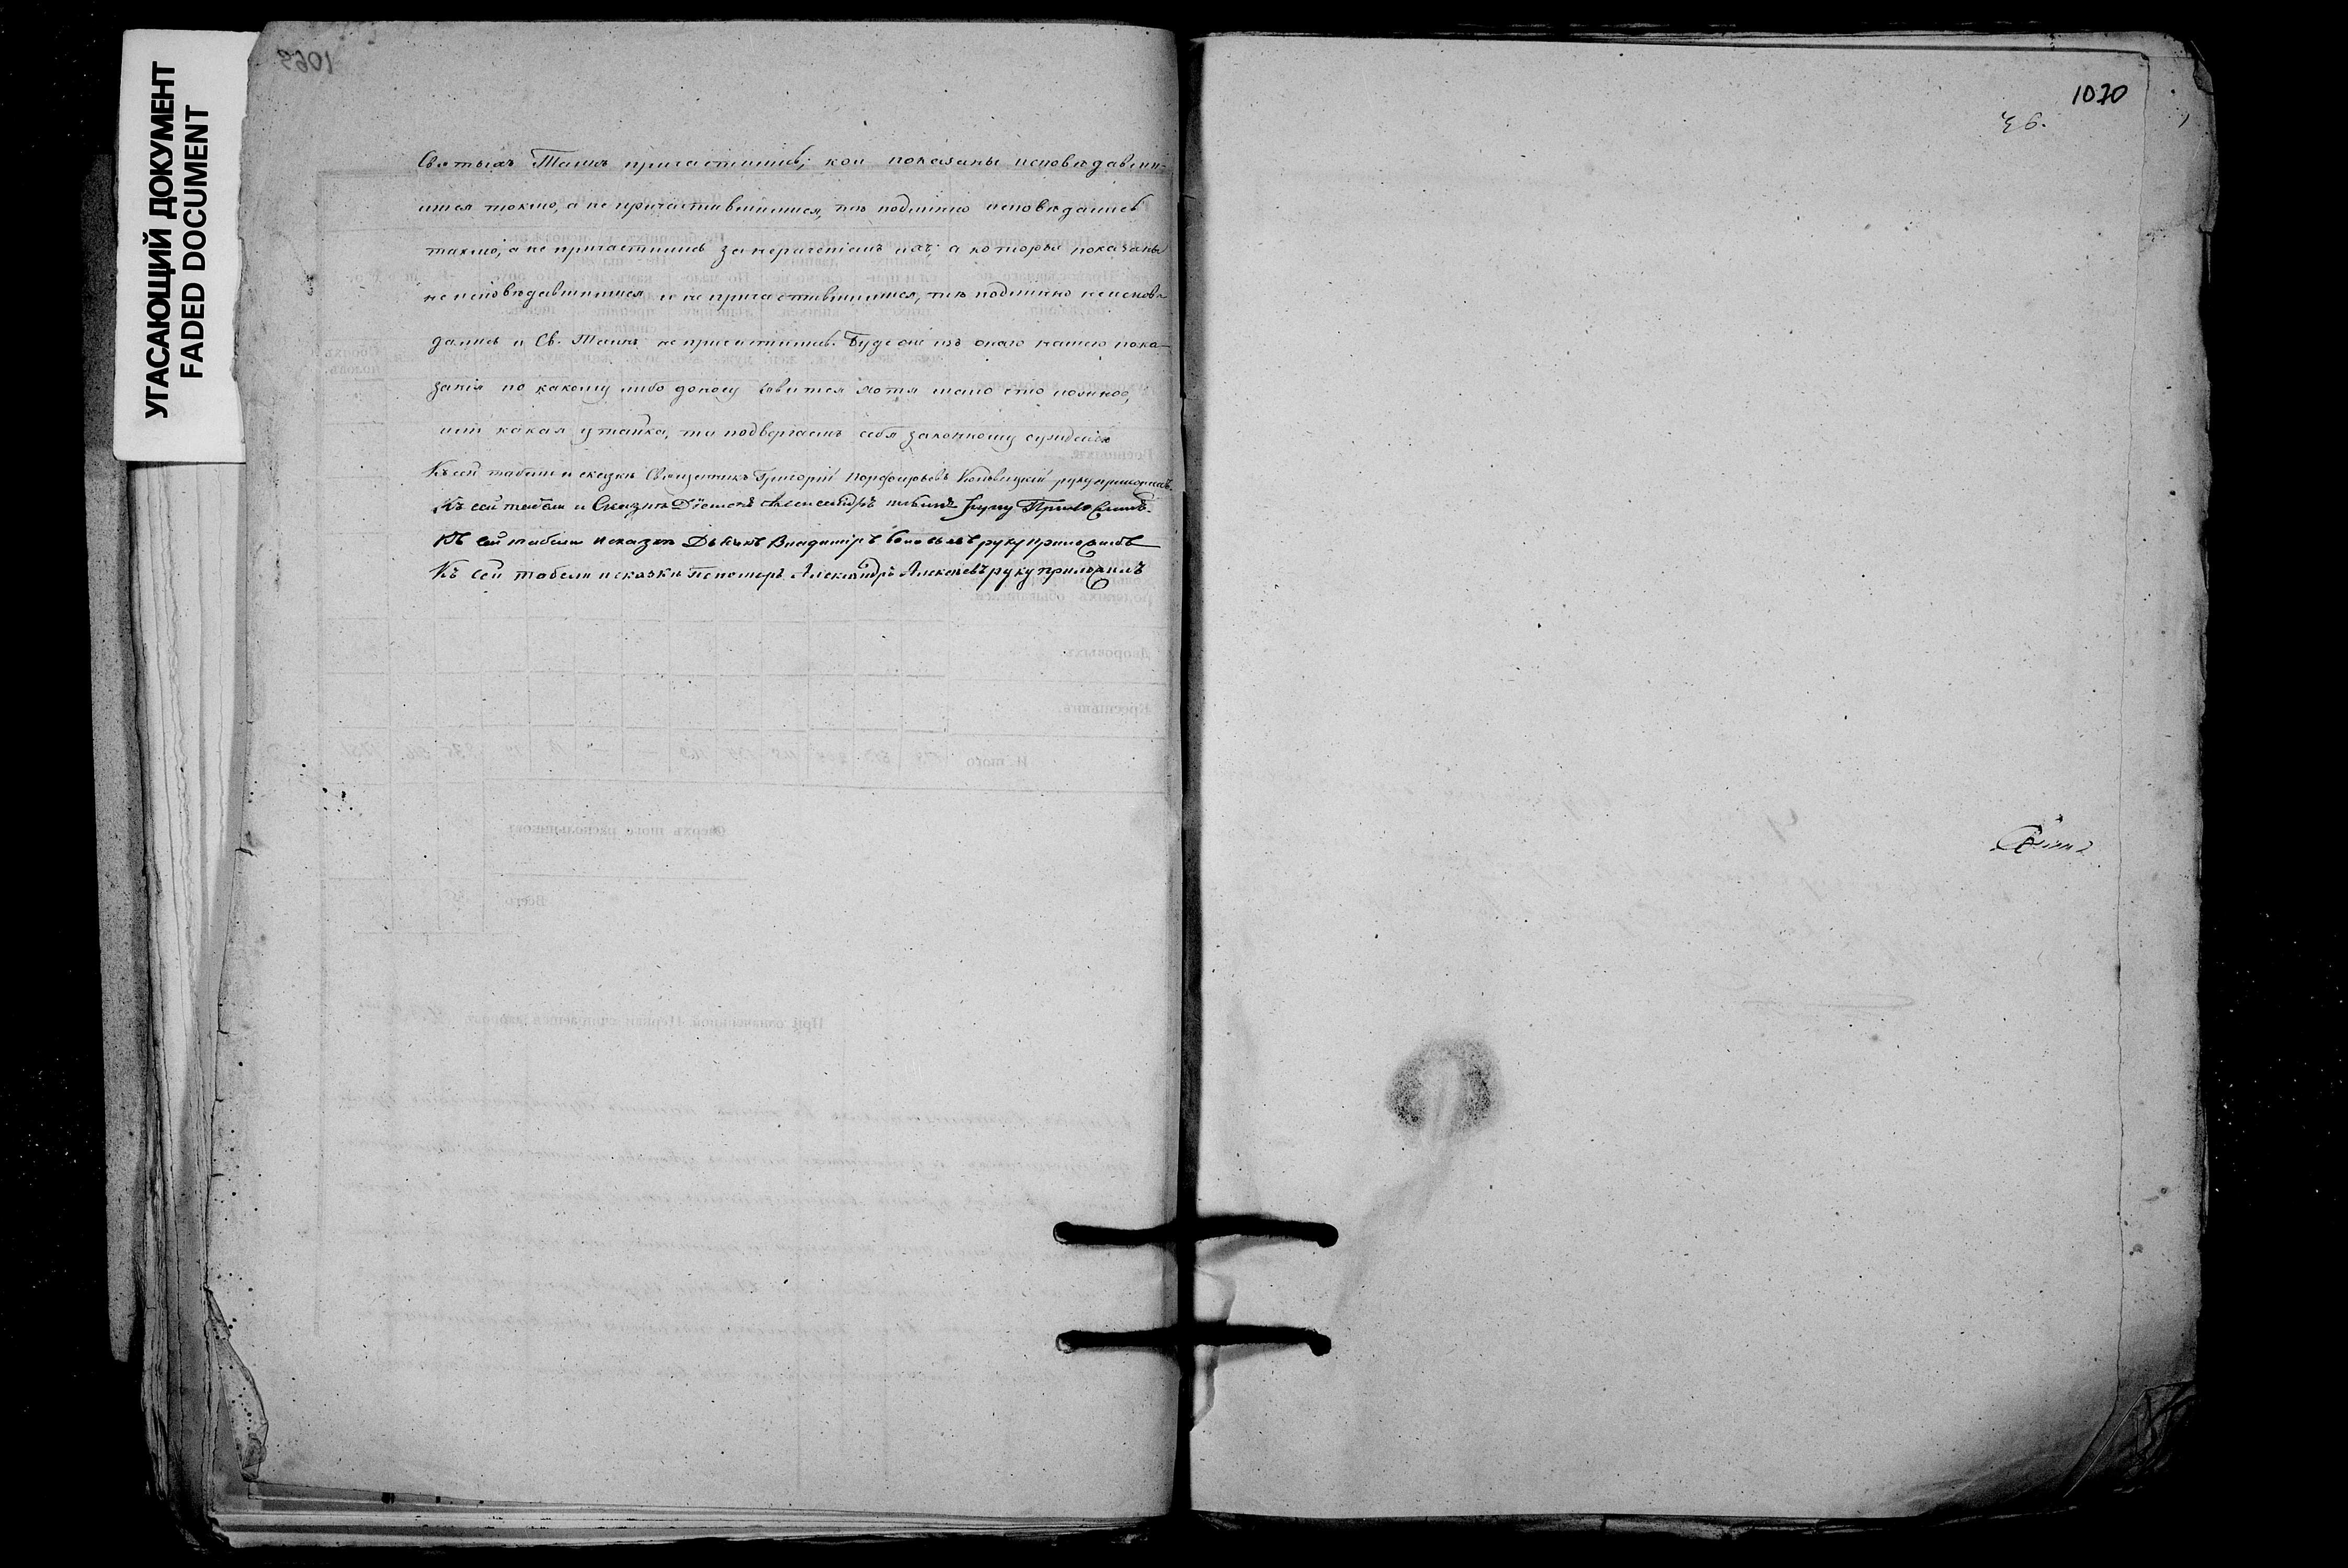 УГАСАЮЩИЙ ДОКУМЕНТ
FADED DOCUMENT
Святыхъ Таинъ причастились; кои показаны исповѣдавши-
мися токмо, а не причастившимися, тѣ подлинно исповѣдались
токмо, а не причастились за нераченіемъ ихъ; а которые показаны
не исповѣдавшимися и не причастившимися, тѣ подлинно не исповѣ-
дались и Св. Таинъ не причастились. Буде же изъ онаго нашего пока-
занія по какому либо доносу явится хотя мало что ложное,
или какая утайка, то подвергаемъ себя законному сужденію
Къ сей табели и сказкѣ Священникъ Григорій Порфирьевъ руку приложилъ.
Къ сей табели и Сказкѣ Діаконъ Александръ руку Приложилъ.
Къ сей табели и сказкѣ Дьячекъ Владиміръ руку приложилъ
Къ сей табели и сказкѣ Пономарь Александръ Алексеевъ руку приложилъ
1070